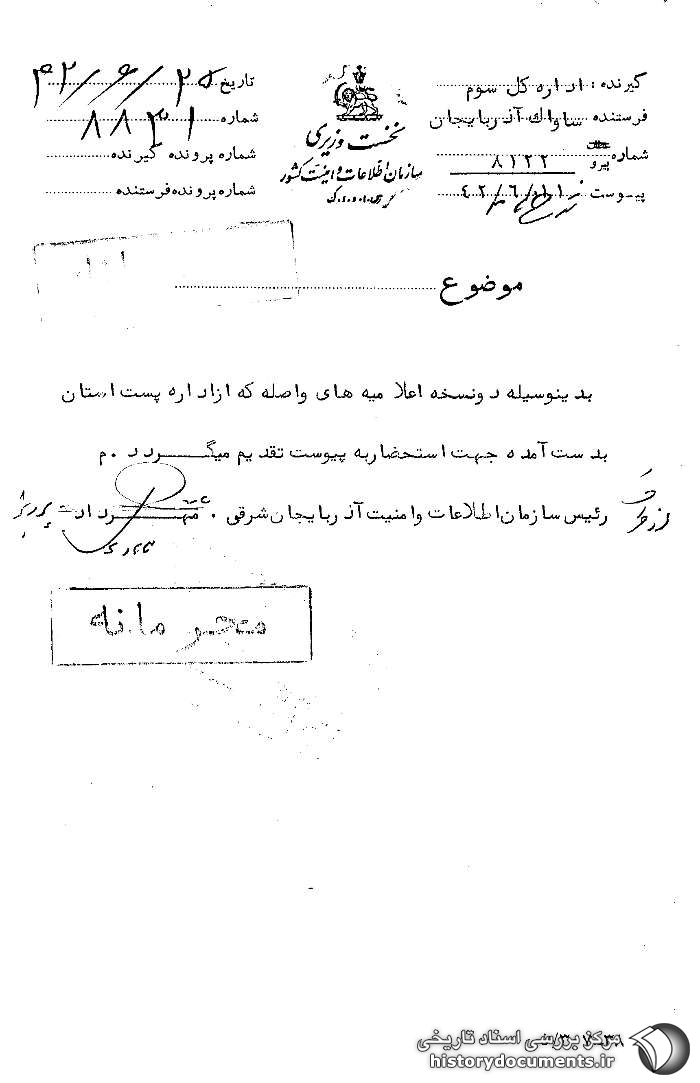 گیرنده: اداره کل سوم
فرستنده ساواک آذربایجان
شماره پیرو ۸۱۲۲
پیوست ۴۲/۶/۱۱
نخست وزیری
سازمان اطلاعات و امنیت کشور
تاریخ ۴۲/۶/۲۵
شماره ۸۸۳۱
شماره پرونده گیرنده
شماره پرونده فرستنده
موضوع
بدینوسیله دونسخه اعلامیه های واصله که ازاداره پست استان
بدست آمده جهت استحضاربه پیوست تقدیم میگردد.م
رئیس سازمان اطلاعات وامنیت آذربایجان شرقی. مهرداد
محرمانه
مرکز بررسی اسناد تاریخی
historydocuments.ir